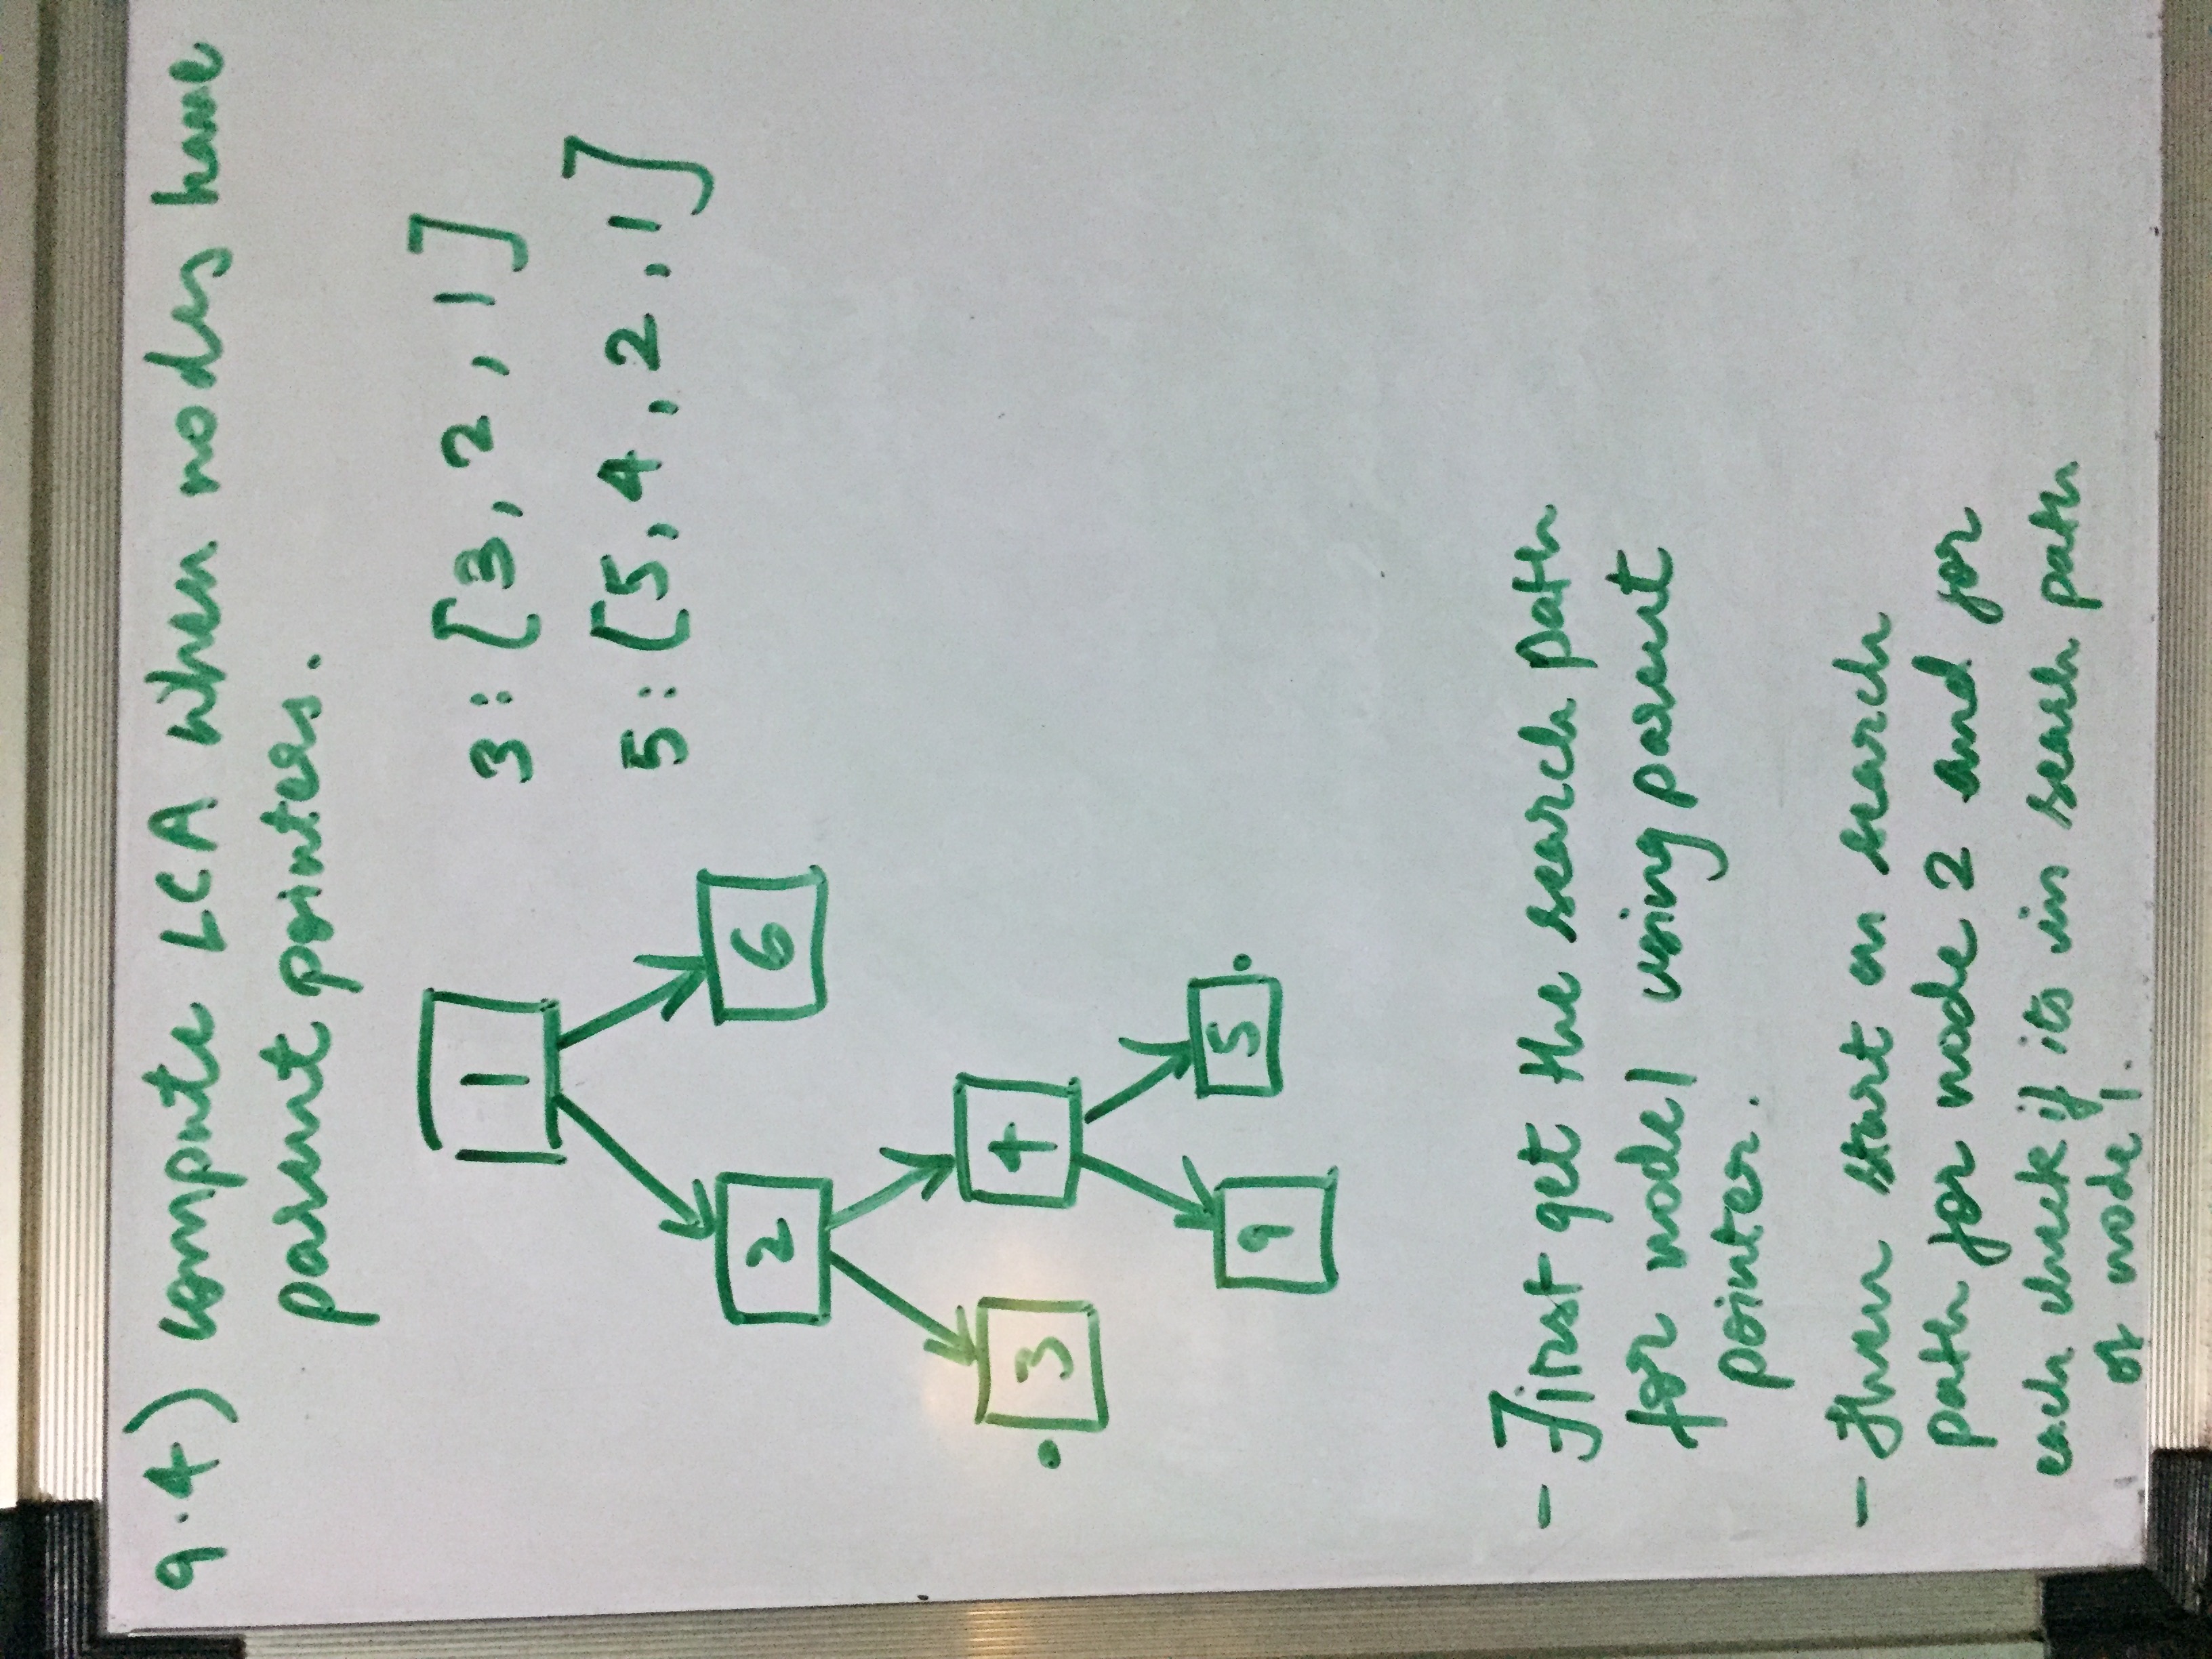 9.4) compute LCA when nodes have
parent pointers.
1
3: [3, 2, 1]
5: [5, 4, 2, 1]
2
6
3
4
9
5
- First get the search path
for node1 using parent
pointer.
- then start on search
path for node 2 and for
each check if its in search path
of node 1.